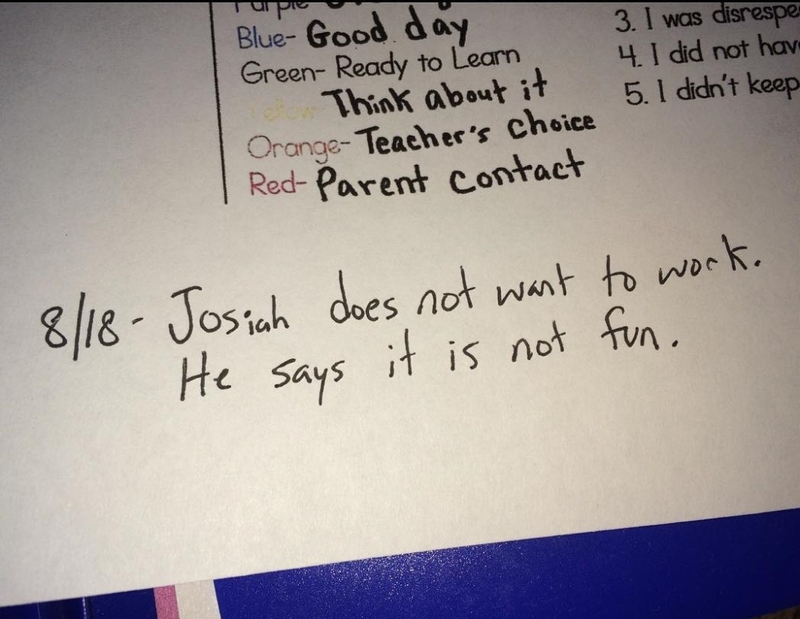 Purple
Blue- Good day
Green- Ready to Learn
Yellow- Think about it
Orange- Teacher's choice
Red- Parent contact
3. I was
4. I did not
5. I didn't keep
8/18- Josiah does not want to work.
He says it is not fun.